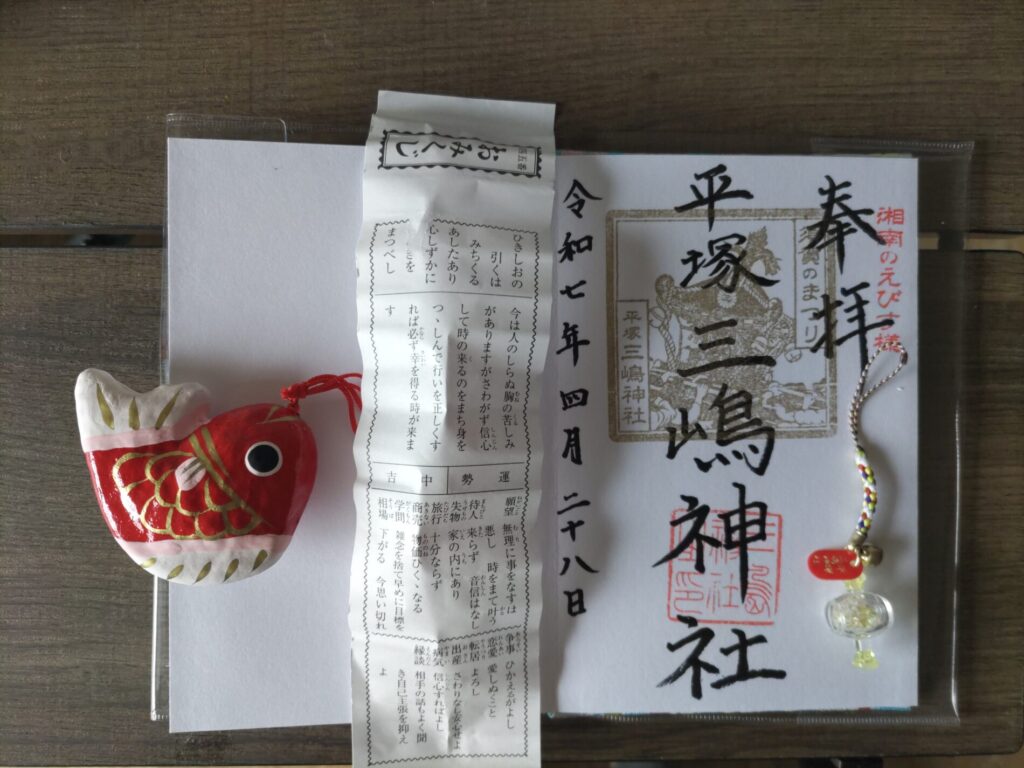 湘南のえびす様
奉拝
須賀のまつり
平塚三嶋神社
平塚三嶋神社
令和七年四月二十八日
おみくじ
ひきしおの
引くは
みちくる
あしたあり
心しずかに
を
まつべし
今は人のしらぬ胸の苦しみ
がありますがさわがず信心
して時の来るのをまち身を
つゝしんで行いを正しくす
れば必ず幸を得る時が来ま
す
運勢 中吉
願望 無理に事をなすは
悪し 時をまて叶う
待人 来らず 音信はなし
失物 家の内にあり
旅行 十分ならず
商売 物価ひくゝなる
学問 雑念を捨て早めに目標を
相場 下がる 今思い切れ
争事 ひかえるがよし
恋愛 愛しぬくこと
転居 よろし
出産 さわりなし安心せよ
病気 信心すればよし
縁談 相手の話もよく聞
き自己主張を抑え
よ